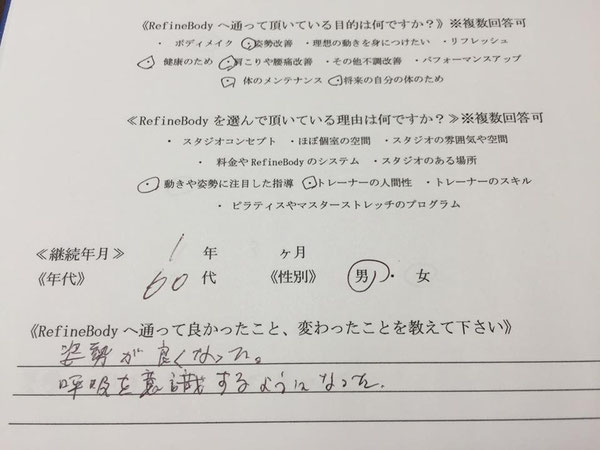 《RefineBody へ通って頂いている目的は何ですか？》※複数回答可
・ ボディメイク ・姿勢改善 ・理想の動きを身につけたい ・リフレッシュ
・ 健康のため ・肩こりや腰痛改善 ・その他不調改善 ・パフォーマンスアップ
・ 体のメンテナンス ・将来の自分の体のため
≪RefineBody を選んで頂いている理由は何ですか？≫※複数回答可
・ スタジオコンセプト ・ほぼ個室の空間 ・スタジオの雰囲気や空間
・ 料金や RefineBody のシステム ・スタジオのある場所
・ 動きや姿勢に注目した指導 ・トレーナーの人間性 ・トレーナーのスキル
・ ピラティスやマスターストレッチのプログラム
≪継続年月≫ 1 年 ヶ月
《年代》 60 代 《性別》 男 ・ 女
《RefineBody へ通って良かったこと、変わったことを教えて下さい》
姿勢が良くなった。
呼吸を意識するようになった.